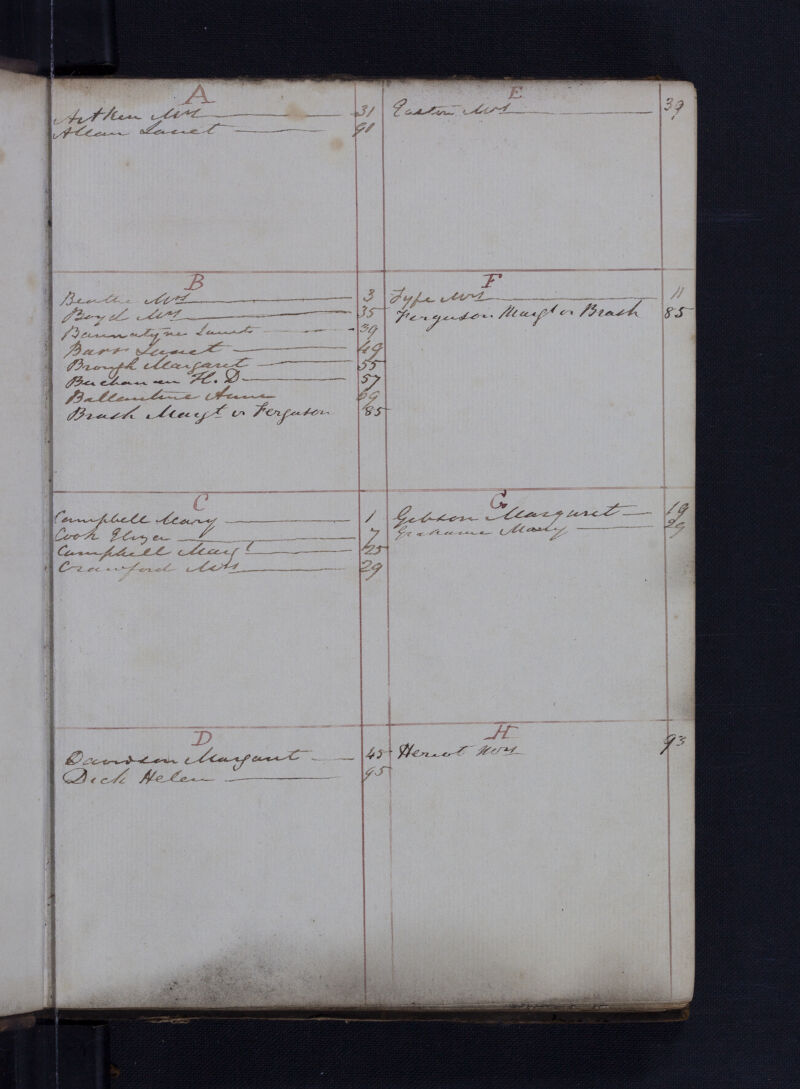 A
Aitken Mrs 31
Allan Janet 91
B
Beattie Mrs 3
Boyd Mrs 35
Bannatyne Janet 39
Barr Janet 49
Brough Margaret 55
Buchanan H. D 57
Ballantine Anne 69
Brash Margt or Ferguson 85
C
Campbell Mary 1
Cook Eliza 7
Campbell Margt 25
Crawford Mrs 29
D
Davidson Margaret 45
Dick Helen 95
E
Easton Mrs 39
F
Fyfe Mrs 11
Ferguson Margt or Brash 85
G
Gibson Margaret 19
Grahame Mary 29
H
Heriot Mrs 93